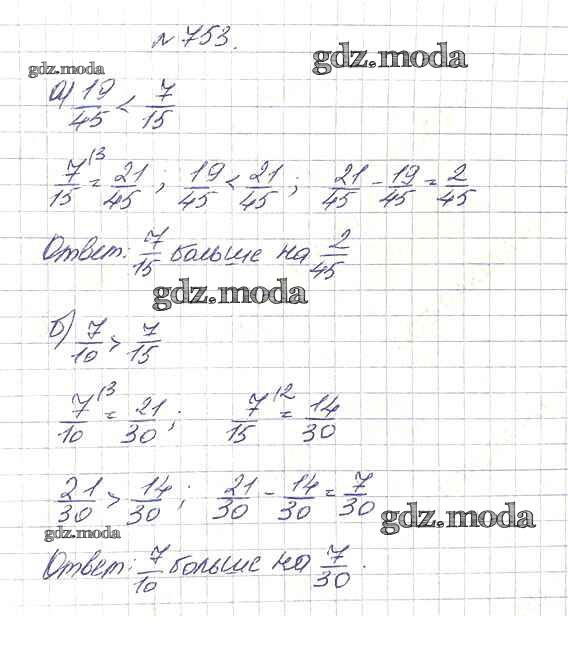 № 753.
gdz.moda
gdz.moda
а) 19/45 < 7/15
7/15 \3 = 21/45 ; 19/45 < 21/45 ; 21/45 - 19/45 = 2/45
Ответ: 7/15 больше на 2/45
gdz.moda
б) 7/10 > 7/15
7/10 \3 = 21/30 ; 7/15 \2 = 14/30
21/30 > 14/30 ; 21/30 - 14/30 = 7/30
gdz.moda
gdz.moda
Ответ: 7/10 больше на 7/30 .